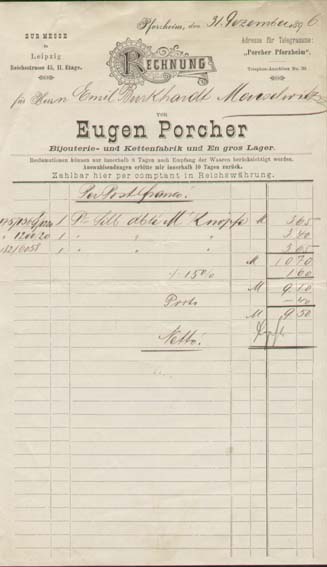 Pforzheim, den 31. Dezember 1896
ZUR MESSE
in
Leipzig
Reichsstrasse 45, II. Etage.
Adresse für Telegramme:
"Porcher Pforzheim"
Telephon-Anschluss No. 30.
RECHNUNG
für Herrn Emil Burkhardt
von
Eugen Porcher
Bijouterie- und Kettenfabrik und En gros Lager.
Reclamationen können nur innerhalb 8 Tagen nach Empfang der Waaren berücksichtigt werden.
Auswahlsendungen erbitte mir innerhalb 10 Tagen zurück.
Zahlbar hier per comptant in Reichswährung.
Per Post franco!
1 Pr. Silb M' Knöpfe M 3 65
1 " " " " 3 40
1 " " " " 3 65
M 10 70
÷ 15% 1 60
M 9 10
Porto 40
Netto! M 9 50